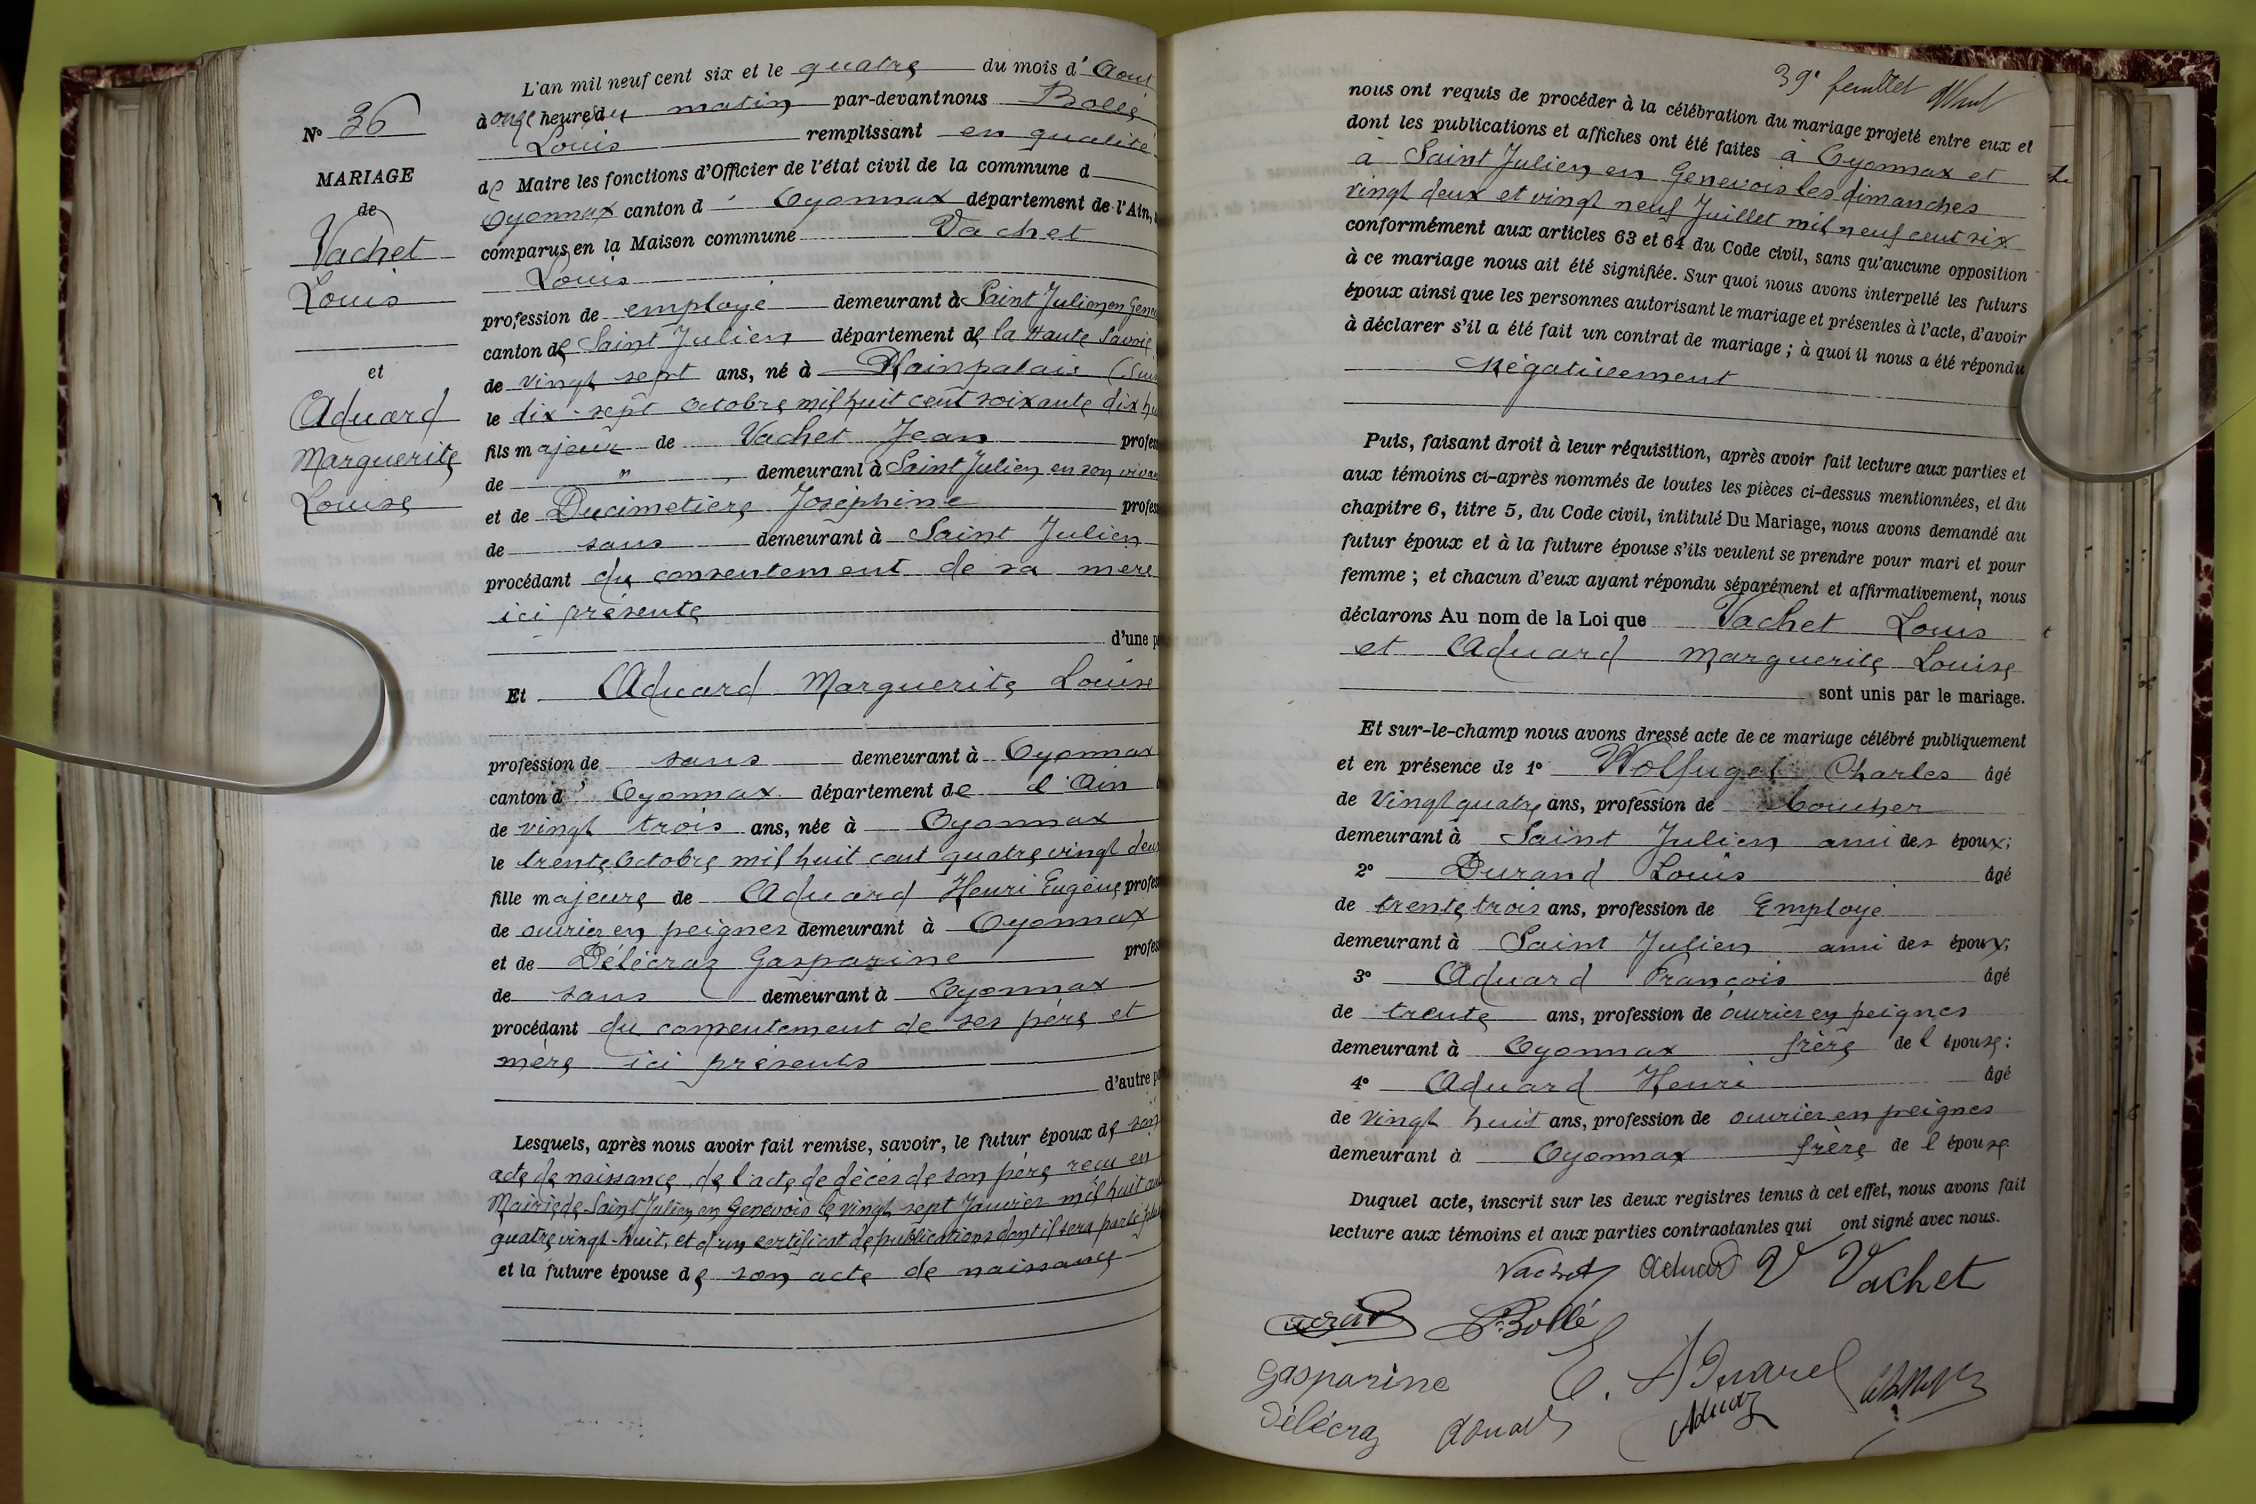 L'an mil neuf cent six et le quatre du mois d' Aout
à onze heures du matin par-devant nous Bollé
Louis remplissant en qualité
de Maire les fonctions d'Officier de l'état civil de la commune d
Oyonnax canton d' Oyonnax département de l'Ain,
comparus en la Maison commune Vachet
Louis
profession de employé demeurant à Saint Julien en Gene
canton de Saint Julien département de la Haute Savoie
de vingt sept ans, né à Plainpalais (Suis
le dix-sept Octobre mil huit cent soixante dix hu
fils majeur de Vachet Jean profes
de " demeurant à Saint Julien en son vivan
et de Ducimetière Joséphine profes
de sans demeurant à Saint Julien
procédant du consentement de sa mère
ici présente
d'une pa
Et Aduard Marguerite Louise
profession de sans demeurant à Oyonnax
canton d' Oyonnax département de l'Ain
de vingt trois ans, née à Oyonnax
le trente Octobre mil huit cent quatre vingt deux
fille majeure de Aduard Henri Eugène profes
de ouvrier en peignes demeurant à Oyonnax
et de Délécraz Gasparine profes
de sans demeurant à Oyonnax
procédant du consentement de ses père et
mère ici présents
d'autre pa
Lesquels, après nous avoir fait remise, savoir, le futur époux de son
acte de naissance, de l'acte de décès de son père reçu en
Mairie de Saint Julien en Genevois le vingt sept Janvier mil huit cent
quatre vingt-huit, et d'un certificat de publications dont il sera parlé plus
et la future épouse de son acte de naissance
N° 36
MARIAGE
de
Vachet
Louis
et
Aduard
Marguerite
Louise
39e feuillet
nous ont requis de procéder à la célébration du mariage projeté entre eux et
dont les publications et affiches ont été faites à Oyonnax et
à Saint Julien en Genevois les dimanches
vingt deux et vingt neuf Juillet mil neuf cent six
conformément aux articles 63 et 64 du Code civil, sans qu'aucune opposition
à ce mariage nous ait été signifiée. Sur quoi nous avons interpellé les futurs
époux ainsi que les personnes autorisant le mariage et présentes à l'acte, d'avoir
à déclarer s'il a été fait un contrat de mariage ; à quoi il nous a été répondu
Négativement
Puis, faisant droit à leur réquisition, après avoir fait lecture aux parties et
aux témoins ci-après nommés de toutes les pièces ci-dessus mentionnées, et du
chapitre 6, titre 5, du Code civil, intitulé Du Mariage, nous avons demandé au
futur époux et à la future épouse s'ils veulent se prendre pour mari et pour
femme ; et chacun d'eux ayant répondu séparément et affirmativement, nous
déclarons Au nom de la Loi que Vachet Louis
et Aduard Marguerite Louise
sont unis par le mariage.
Et sur-le-champ nous avons dressé acte de ce mariage célébré publiquement
et en présence de 1° Wolfugel Charles âgé
de Vingt quatre ans, profession de boucher
demeurant à Saint Julien ami des époux;
2° Durand Louis âgé
de trente trois ans, profession de Employé
demeurant à Saint Julien ami des époux;
3° Aduard François âgé
de trente ans, profession de ouvrier en peignes
demeurant à Oyonnax frère de l'épouse;
4° Aduard Henri âgé
de vingt huit ans, profession de ouvrier en peignes
demeurant à Oyonnax frère de l'épouse
Duquel acte, inscrit sur les deux registres tenus à cet effet, nous avons fait
lecture aux témoins et aux parties contractantes qui ont signé avec nous.
Vachet Aduard V Vachet
Bollé
Gasparine
Délécraz
Aduard